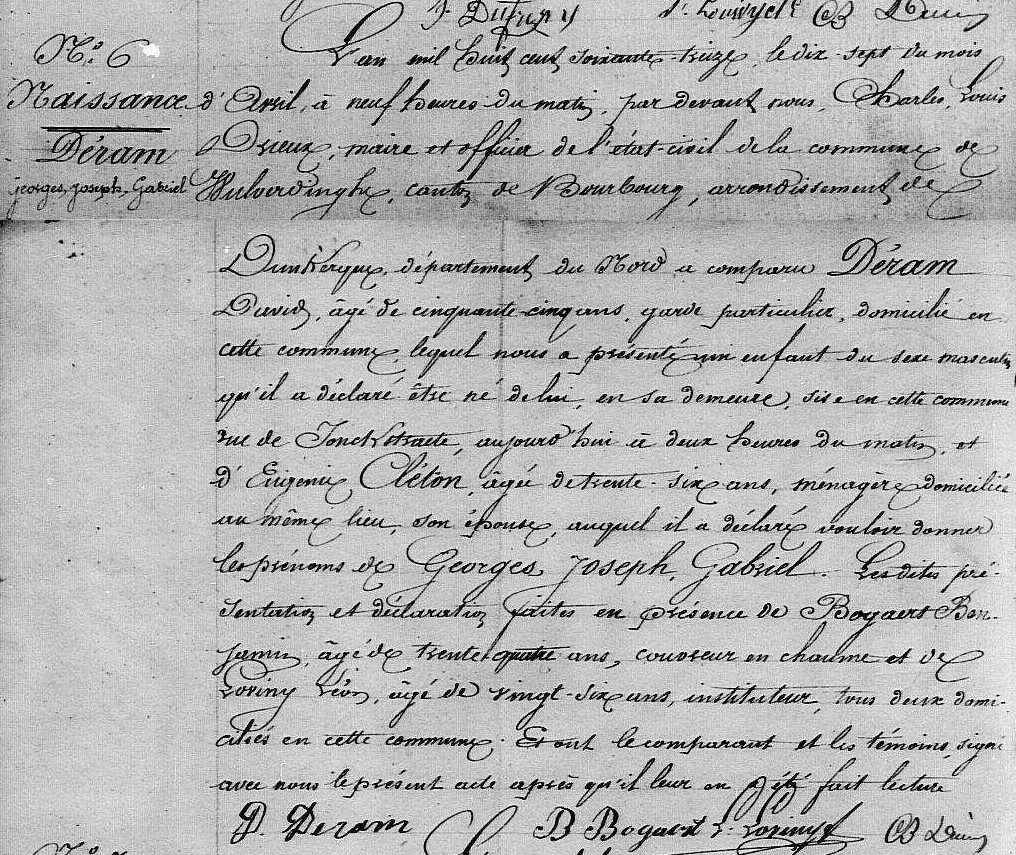 N.° 6
Naissance
Déram
georges, joseph, Gabriel
L'an mil huit cent soixante-treize, le dix-sept du mois
d'Avril, à neuf heures du matin, par devant nous, Charles, Louis
Drieux, maire et officier de l'état-civil de la commune de
Wulverdinghe, canton de Bourbourg, arrondissement de
Dunkerque, département du Nord a comparu Déram
David, âgé de cinquante-cinq ans, garde particulier, domicilié en
cette commune, lequel nous a présenté un enfant du sexe masculin
qu'il a déclaré être né de lui, en sa demeure, sise en cette commune
rue de aujourd'hui à deux heures du matin, et
d'Eugénie Cléton, âgée de trente-six ans, ménagère domiciliée
au même lieu, son épouse, auquel il a déclaré vouloir donner
les prénoms de Georges, Joseph, Gabriel. Les dites pré-
sentation et déclaration faites en présence de Bogaert Ben-
jamin, âgé de trente-quatre ans, couvreur en chaume et de
Loviny Léon, âgé de vingt-six ans, instituteur, tous deux domi-
ciliés en cette commune. Et ont le comparant et les témoins, signé
avec nous le présent acte après qu'il leur en a été fait lecture
D. Deram B Bogaert L. Loviny